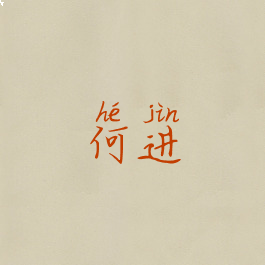 hé jìn
何进